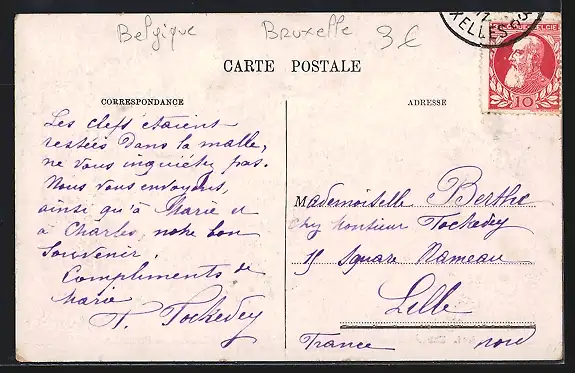 Belgique Bruxelle 3 €
XELLES
CARTE POSTALE
10
CORRESPONDANCE
ADRESSE
Les clefs étaient
restées dans la malle,
ne vous inquiétez pas.
Nous vous envoyons,
ainsi qu'à Marie et
à Charles, notre bon
Souvenir.
Compliments de
Marie
P. Tockedey
Mademoiselle Berthe
chez Monsieur Tockedey
15 Square Rameau
Lille
France nord